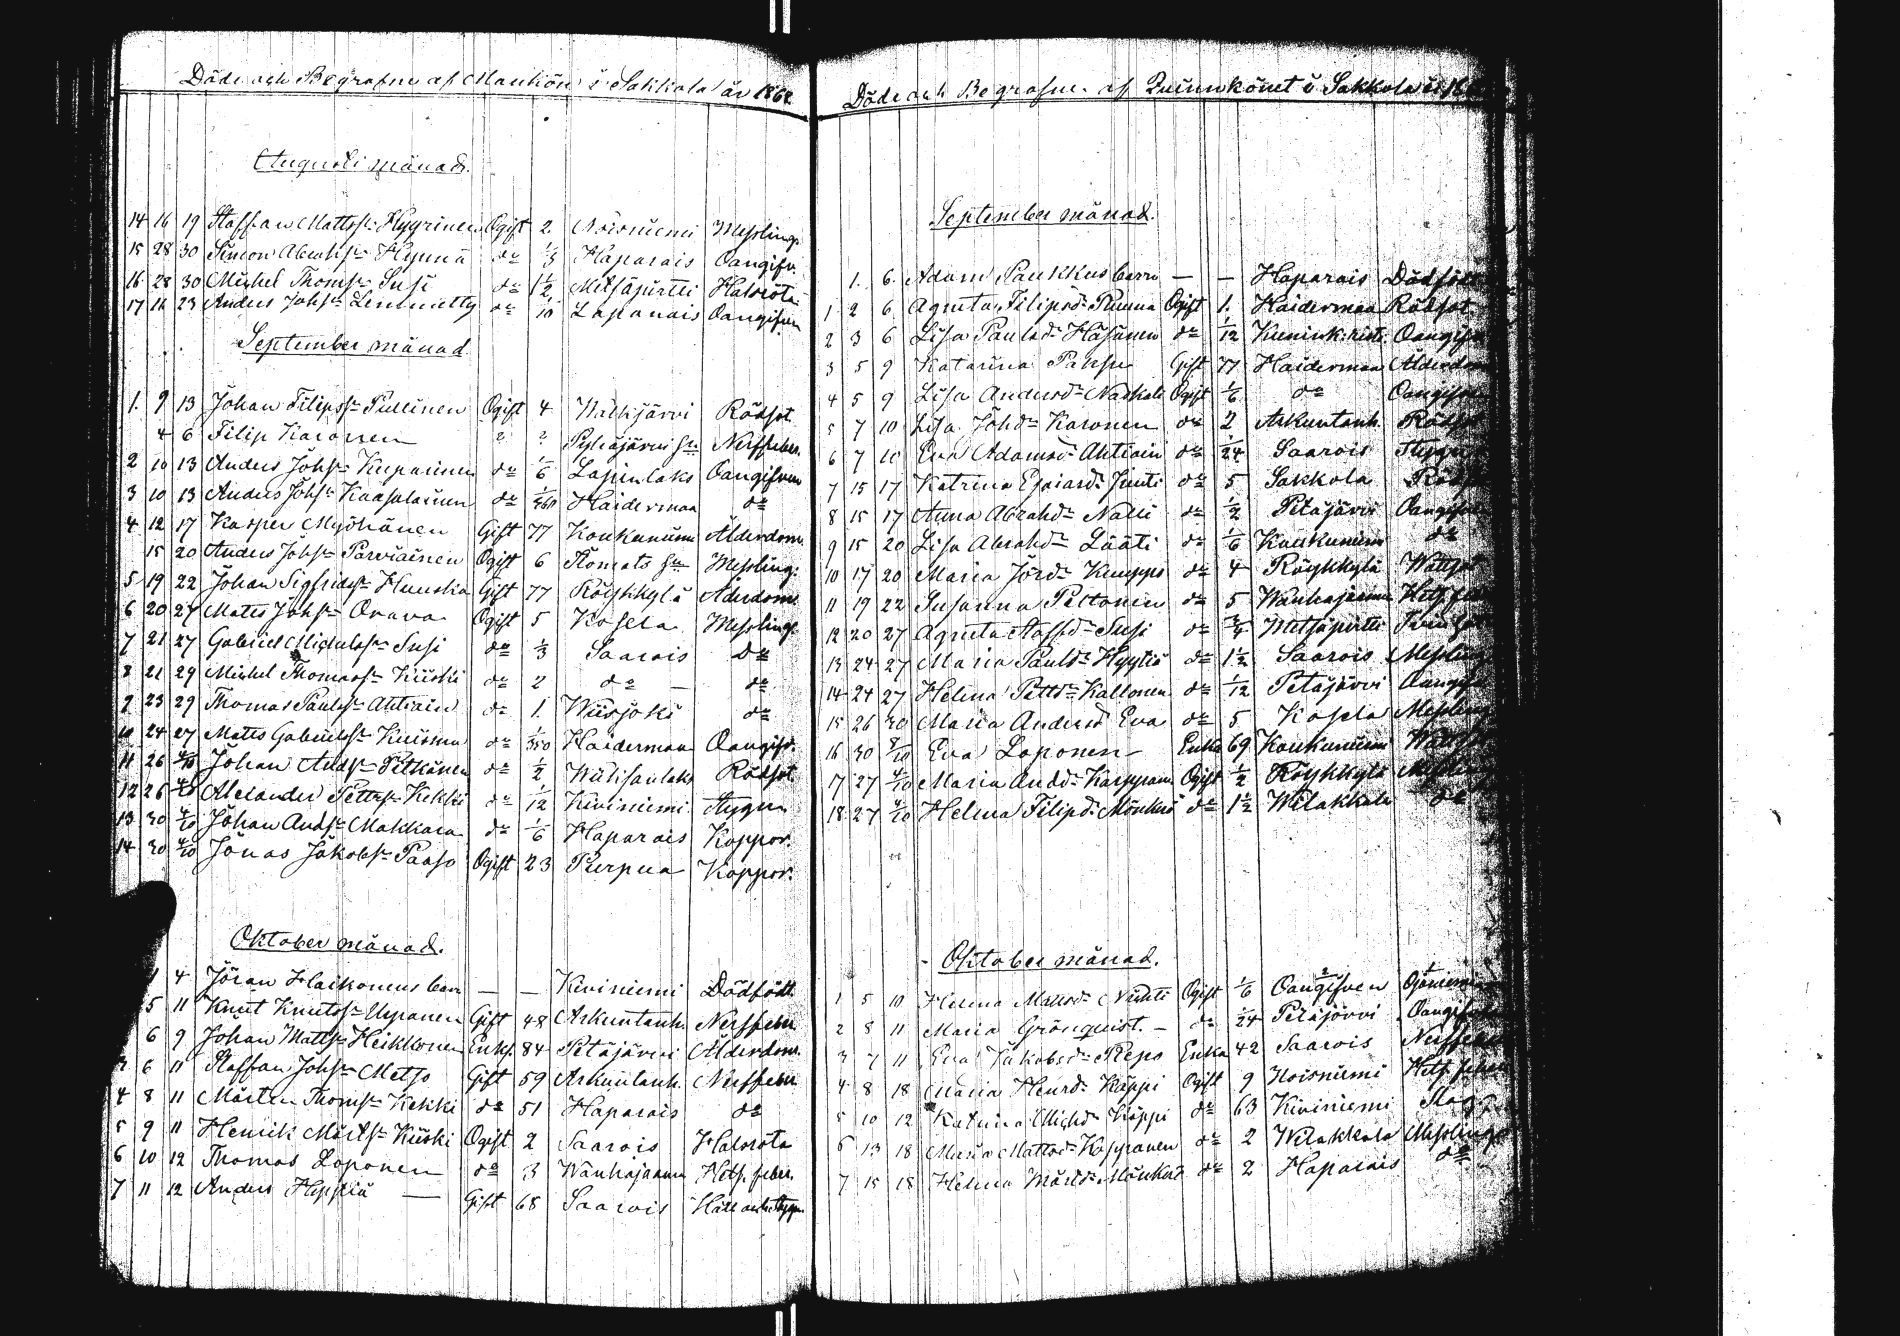 Döde och Begrafne af Mankön i Sakkola år 1868
Augusti månad.
14 16 19 Staffan Mattss. Hyyrinen Ogift 2 Noisniemi Messling.
15 28 30 Simon Abrahss. Hynnä do 1/3 Haparais Oangifv.
16 28 30 Michel Thomss. Susi do 1/2 Metsäpirtti Halsröta
17 16 23 Anders Johss. Lemmetty do 1/10 Lapanais Oangifven
September månad
1. 9 13 Johan Filipss. Pullinen Ogift 4 Walkjärvi Rödsot
4 6 Filip Karonen ? ? Pyhäjärvi Sn Nerffeber.
2 10 13 Anders Johss. Kuparinen do 1/6 Lapinlaks Oangifven
3 10 13 Anders Johss. Kaasalainen do 1/360 Haiderman do
4 12 17 Kasper Myöhänen Gift 77 Koukunniemi Ålderdoms.
15 20 Anders Johss. Parviainen Ogift 6 Romats Sn Messling.
5 19 22 Johan Sigfridss. Hunska Gift 77 Röykkylä Ålderdoms.
6 20 27 Matts Johss. Orava Ogift 5 Kosela Messling.
7 21 27 Gabriel Michelss. Susi do 1/3 Saarois do
8 21 29 Michel Thomass. Kiiski do 2 do do
9 23 29 Thomas Paulss. Ahtiain do 1. Wiisjoki do
10 24 27 Matts Gabrielss. Kuisma do 1/350 Haiderman Oangifv.
11 26 4/10 Johan Andss. Pitkänen do 1/2 Rödsot
12 26 4/10 Alexander Petterss. Kekki do 1/12 Kiviniemi Stygn
13 30 4/10 Johan Andss. Makkara do 1/6 Haparais Koppor.
14 30 4/10 Jonas Jakobss. Paaso Ogift 23 Purpua Koppor.
Oktober månad.
1 4 Jöran Haikonens barn — — Kiviniemi Dödfödt
5 11 Knut Knutss. Uspanen Gift 48 Arkuntanh. Nerffeber
6 9 Johan Mattss. Heikkonen Enkl. 84 Petäjärvi Ålderdom.
3 6 11 Staffan Johss. Metso Gift 59 Arkuntanh. Nerffeber
4 8 11 Mårten Thomss. Kekki do 51 Haparais do
5 9 11 Henrik Mårtss. Kiiski Ogift 2 Saarois Halsröta
6 10 12 Thomas Loponen do 3 Wanhajaama Hets. feber.
7 11 12 Anders Hyytiä — Gift 68 Saarois Håll och Stygn
Döde och Begrafne af Quinnkönet i Sakkola år 186
September månad.
1. 6 Adam Paukkus barn — — Haparais Dödfödt
1 2 6 Agneta Filipsd. Ruuna Ogift 1. Haiderman Rödsot
2 3 6 Lisa Paulsd. Häsänen do 1/12 Kunink.risti Oangifv
3 5 9 Katarina Gift 77 Haiderman Ålderdom
4 5 9 Lisa Andersd. Naskali Ogift 1/6 do Oangifven
5 7 10 Lisa Johsd. Karonen do 2 Arkuntanh. Rödsot
6 7 10 Eva Adamsd. Ahtiain do 1/24 Saarois Stygn
7 15 17 Katrina Esaiasd. Juuti do 5 Sakkola Rödsot
8 15 17 Anna Abrahd. Nalli do 1/2 Petäjärvi Oangifven
9 15 20 Lisa Abrahd. Lääti do 1/6 Koukunniemi do
10 17 20 Maria Jörd. Kumppo do 4 Röykkylä Wattusot
11 19 22 Susanna Peltonen do 5 Wanhajaama Hets. feber
12 20 27 Agneta Staffsd. Susi do 3/4 Metsäpirtti
13 24 27 Maria Paulsd. Hyytiä do 1 1/2 Saarois Messling
14 24 27 Helena Pettd. Kallonen do 1/12 Petäjärvi Oangifv
15 26 30 Maria Andersd. Eva do 5 Kosela Messling
16 30 2/10 Eva Loponen Enka 69 Koukunniemi
17 27 4/10 Maria Andd. Karppanen Ogift 1/2 Röykkylä Messling
18 27 4/10 Helena Filipd. Mönkkö do 1 1/2 Wilakkala do
Oktober månad.
1 5 10 Helena Mattsd. Ogift 1/6 Oangifven
2 8 11 Maria Grönquist. — do 1/24 Petäjärvi Oangifven
3 7 11 Eva Jakobsd. Repo Enka 42 Saarois Nerffeber
4 8 18 Maria Henrd. Käppi Ogift 9 Noisniemi Hets. feber
5 10 12 Katrina Michd. Käppi do 63 Kiviniemi
6 13 18 Maria Mattsd. Karppanen do 2 Wilakkala Messling
7 15 18 Helena Mårtd. Mönkkö do 2 Haparais do